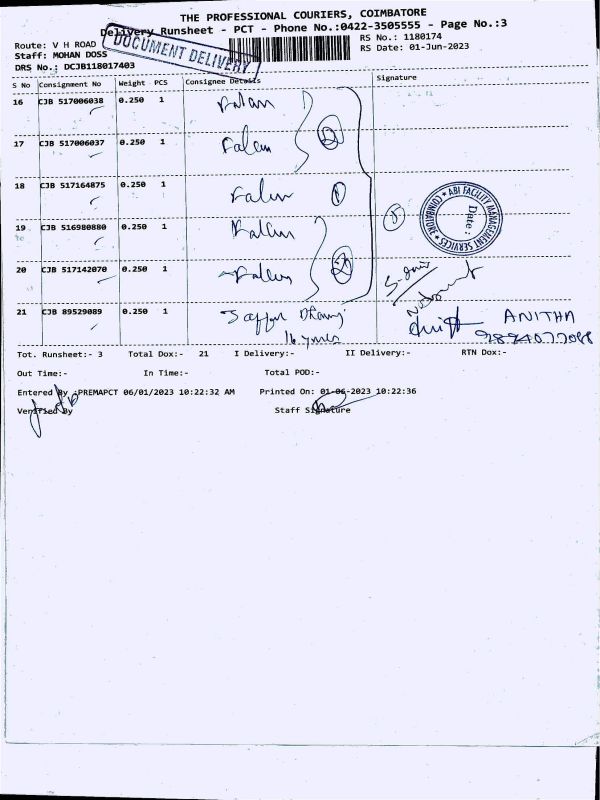 THE PROFESSIONAL COURIERS, COIMBATORE
Delivery Runsheet - PCT - Phone No.:0422-3505555 - Page No.:3
DOCUMENT DELIVERY
Route: V H ROAD
RS No.: 1180174
Staff: MOHAN DOSS
RS Date: 01-Jun-2023
DRS No.: DCJB118017403
S No Consignment No Weight PCS Consignee Details Signature
16 CJB 517006038 0.250 1
17 CJB 517006037 0.250 1 2
18 CJB 517164875 0.250 1 1
19 CJB 516980880 0.250 1 5
ABI FACILITY MANAGEMENT SERVICES * COIMBATORE *
Date:
20 CJB 517142070 0.250 1 2
21 CJB 89529089 0.250 1
ANITHA
Tot. Runsheet:- 3 Total Dox:- 21 I Delivery:- II Delivery:- RTN Dox:-
Out Time:- In Time:- Total POD:-
Entered By :PREMAPCT 06/01/2023 10:22:32 AM Printed On: 01-06-2023 10:22:36
Verified By Staff Signature